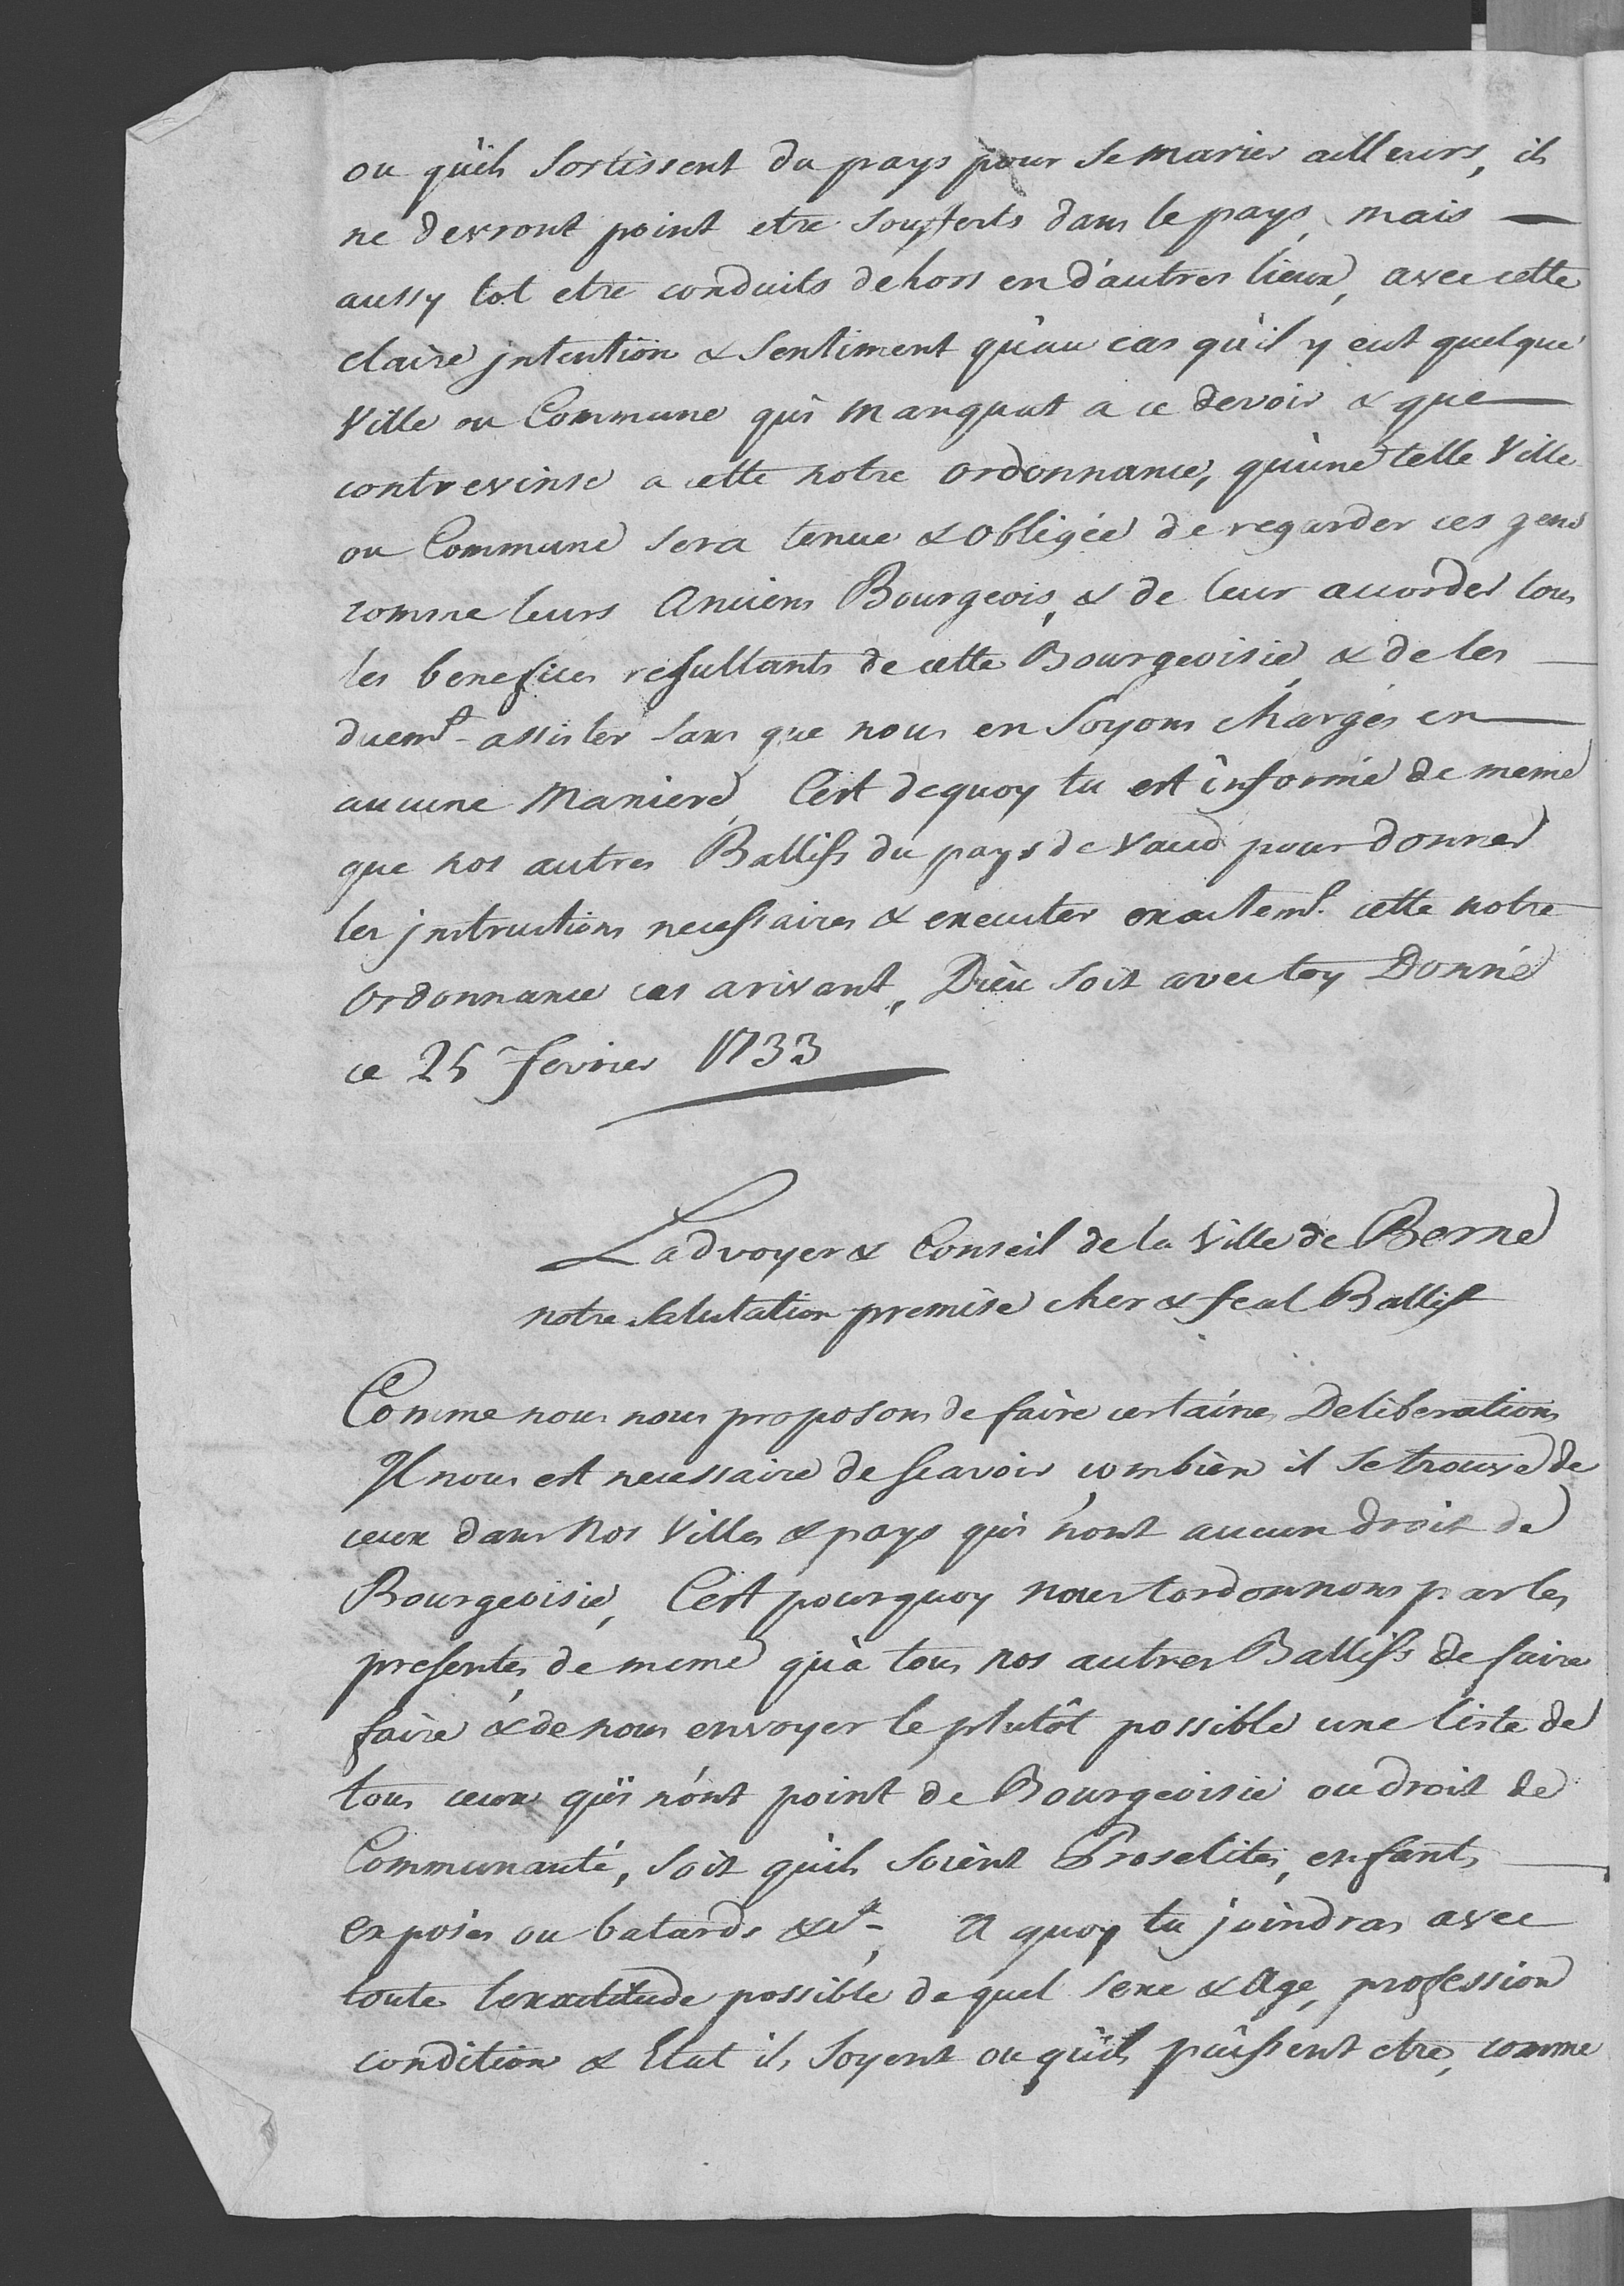 ou qu'ils sortissent du pays pour se marier ailleurs, ils
ne devront point etre soufferts dans le pays, mais —
aussy tot etre conduits dehors en d'autres lieux, avec cette
claire jntention & sentiment qu'au cas qu'il y eut quelque
Ville ou Commune qui manquat a ce devoir & que —
contrevinse a cette notre ordonnance, qu'une telle Ville
ou Commune sera tenue & obligée de regarder ces gens
comme leurs Anciens Bourgeois, & de leur accorder tous
les benefices resultants de cette Bourgeoisie, & de les —
duemt. assister sans que nous en soyons chargés en —
aucune maniere, C'est dequoy tu est informé de meme
que nos autres Ballifs du pays de Vaud pour donner
les jnstructions necessaires & executer exactemt. cette notre
ordonnance cas arivant, Dieu soit avec toy Donné
ce 25 fevrier 1733
Ladvoyer & Conseil de la Ville de Berne
notre salutation premise cher & feal Ballif
Comme nous nous proposons de faire certaines Deliberations
Il nous est necessaire de scavoir, combien il se trouve de
ceux dans nos Villes & pays qui n'ont aucun droit de
Bourgeoisie, C'est pourquoy nous t'ordonnons par les
presentes, de meme qu'à tous nos autres Ballifs de faire
faire & de nous envoyer le plutôt possible une liste de
tous ceux qui n'ont point de Bourgeoisie ou droit de
Communauté, soit qu'ils soient Proselites, enfants —
exposés ou batards &ct., A quoy tu joindras avec
toute lexactitude possible de quel sexe & Age, profession
condition & Etat ils soyent ou qu'ils puissent etre, comme